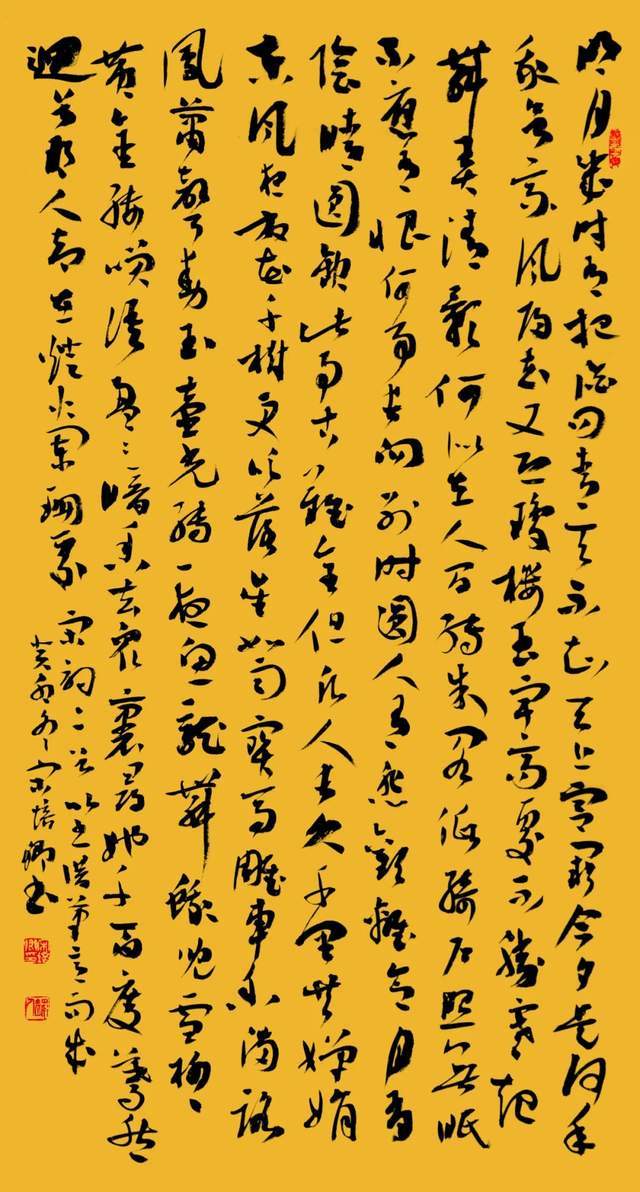 明月幾时有把酒问青天不知天上宫阙今夕是何年
我欲乘风归去又恐琼楼玉宇高處不勝寒起
舞弄清影何似在人间转朱阁低绮户照無眠
不應有恨何事长向别时圆人有悲歡離合月有
陰晴圆缺此事古難全但願人长久千里共婵娟
东风夜放花千樹更吹落星如雨寳马雕車香满路
鳳箫聲动玉壺光转一夜鱼龍舞蛾兒雪柳
黄金缕笑语盈盈暗香去眾裏尋他千百度蓦然
迴首那人却在燈火阑珊處 宋词二首以王铎笔意而成
癸卯冬宋培卿书